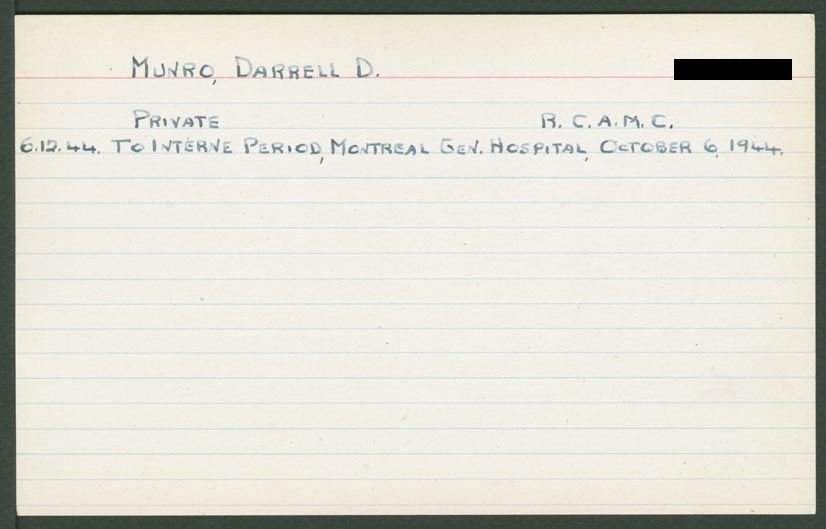 MUNRO, DARRELL D.
PRIVATE R.C.A.M.C.
6.12.44. TO INTERNE PERIOD, MONTREAL GEN. HOSPITAL, OCTOBER 6, 1944.